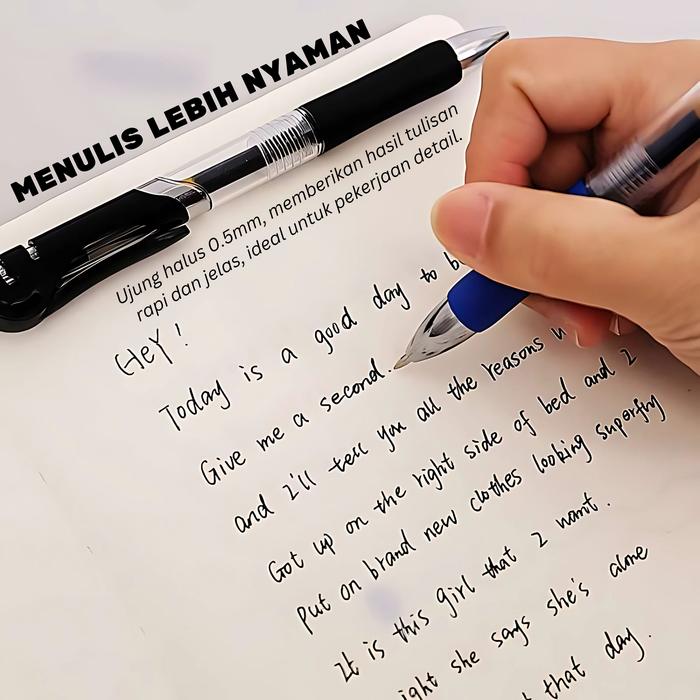 MENULIS LEBIH NYAMAN
Ujung halus 0.5mm, memberikan hasil tulisan
rapi dan jelas, ideal untuk pekerjaan detail.
HeY!
Today is a good day to b
Give me a second.
and I'll tell you all the reasons w
Got up on the right side of bed and I
Put on brand new clothes looking superfly
It is this girl that I want.
ight she says she's alone
t that day.